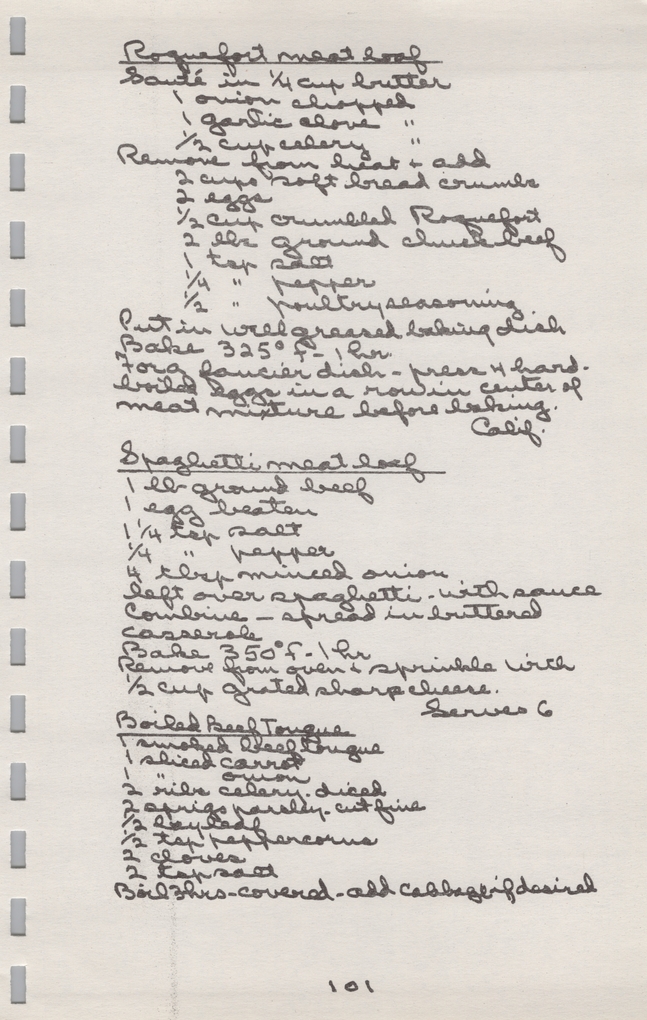 Roquefort meat loaf
Sauté in 1/4 cup butter
1 onion chopped
1 garlic clove "
1/2 cup celery "
Remove from heat + add
2 cups soft bread crumbs
2 eggs
1/2 cup crumbled Roquefort
2 lbs ground chuck beef
1 tsp salt
1/4 " pepper
1/2 " poultry seasoning
Put in well greased baking dish
Bake 325° F - 1 hr.
For a fancier dish - press 4 hard-
boiled eggs in a row in center of
meat mixture before baking.
Calif.
Spaghetti meat loaf
1 lb ground beef
1 egg beaten
1 1/4 tsp salt
1/4 " pepper
4 tbsp minced onion
left over spaghetti - with sauce
Combine - spread in buttered
casserole
Bake 350° F - 1 hr
Remove from oven + sprinkle with
1/2 cup grated sharp cheese.
Serves 6
Boiled Beef Tongue
1 smoked beef tongue
1 sliced carrot
1 " onion
2 ribs celery - diced
2 sprigs parsley - cut fine
1/2 bay leaf
1/2 tsp peppercorns
2 cloves
2 tsp salt
Boil 3 hrs - covered - add cabbage if desired
101